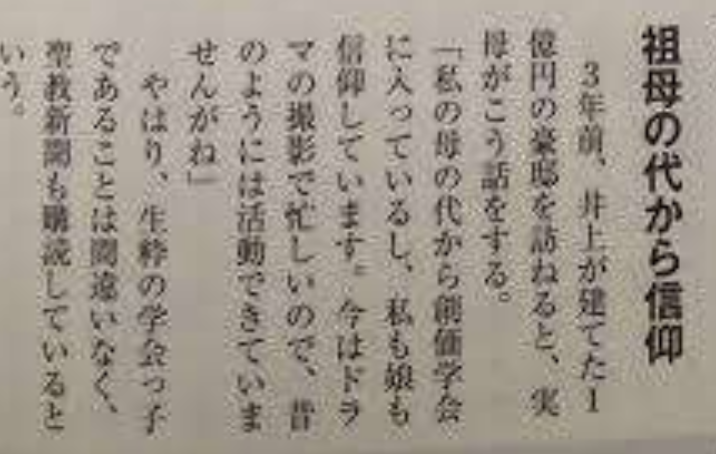 祖母の代から信仰
３年前、井上が建てた１
億円の豪邸を訪ねると、実
母がこう話をする。
「私の母の代から創価学会
に入っているし、私も娘も
信仰しています。今はドラ
マの撮影で忙しいので、昔
のようには活動できていま
せんがね」
やはり、生粋の学会っ子
であることは間違いなく、
聖教新聞も購読していると
いう。